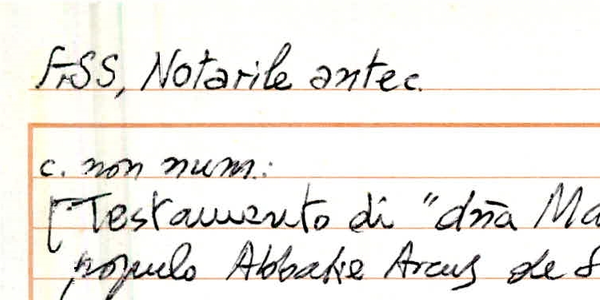 FiSS, Notarile antec.
c. non num.:
[Testamento di "dña Ma
populo Abbatie Arcus de S